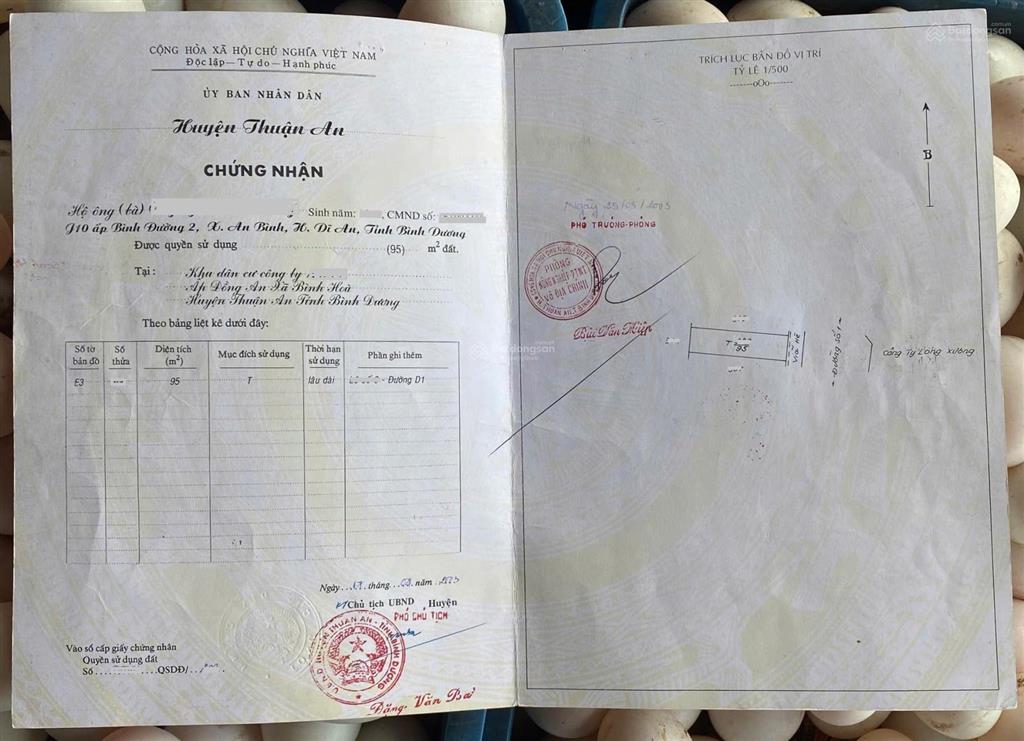 CỘNG HÒA XÃ HỘI CHỦ NGHĨA VIỆT NAM
Độc lập - Tự do - Hạnh phúc
ỦY BAN NHÂN DÂN
Huyện Thuận An
CHỨNG NHẬN
Hộ ông (bà) Sinh năm: , CMND số:
J10 ấp Bình Đường 2, X. An Bình, H. Dĩ An, Tỉnh Bình Dương
Được quyền sử dụng (95) m² đất.
Tại : Khu dân cư công ty
Ấp Đồng An Xã Bình Hoà
Huyện Thuận An Tỉnh Bình Dương
Theo bảng liệt kê dưới đây:
Số tờ bản đồ Số thửa Diện tích (m²) Mục đích sử dụng Thời hạn sử dụng Phần ghi thêm
E3 95 T lâu dài - Đường D1
Ngày tháng năm 2003
Chủ tịch UBND Huyện
PHÓ CHỦ TỊCH
U.B.N.D HUYỆN THUẬN AN - TỈNH BÌNH DƯƠNG
Đặng Văn Ba
Vào sổ cấp giấy chứng nhận
Quyền sử dụng đất
Số QSDĐ/
TRÍCH LỤC BẢN ĐỒ VỊ TRÍ
TỶ LỆ 1/500
-------oOo-------
B
Ngày 25/03/2003
PHÓ TRƯỞNG-PHÒNG
PHÒNG
NÔNG NGHIỆP PTNT
VÀ ĐỊA CHÍNH
Bùi Văn Hiệp
T
95
VỈA HÈ
ĐƯỜNG SỐ 1
Công Ty Long Xương
Batdongsan